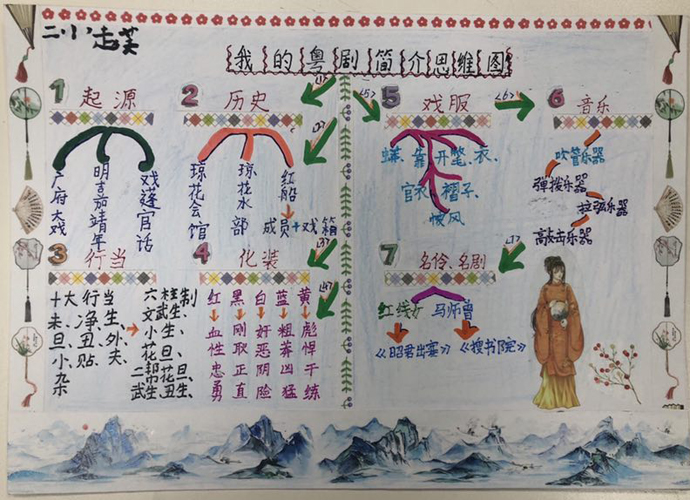 我的粤剧简介思维图
1 起源
广府大戏
明嘉靖年
戏蓬官话
2 历史
琼花会馆
琼花水部
红船
成员+戏箱
3 行当
十大行当
末、净、生、
旦、丑、外、
小、贴、夫、
杂
六柱制
文武生、
小生、
花旦、
二帮花旦、
武生、丑生、
4 化装
红 血性忠勇
黑 刚取正直
白 奸恶阴险
蓝 粗莽凶猛
黄 彪悍干练
<5>
5 戏服
蟒、靠、开氅、衣、
官衣、褶子、
帔风
<6>
6 音乐
吹管乐器
弹拨乐器
拉弦乐器
高敲击乐器
7 名伶、名剧
红线女 马师曾
《昭君出塞》
《搜书院》